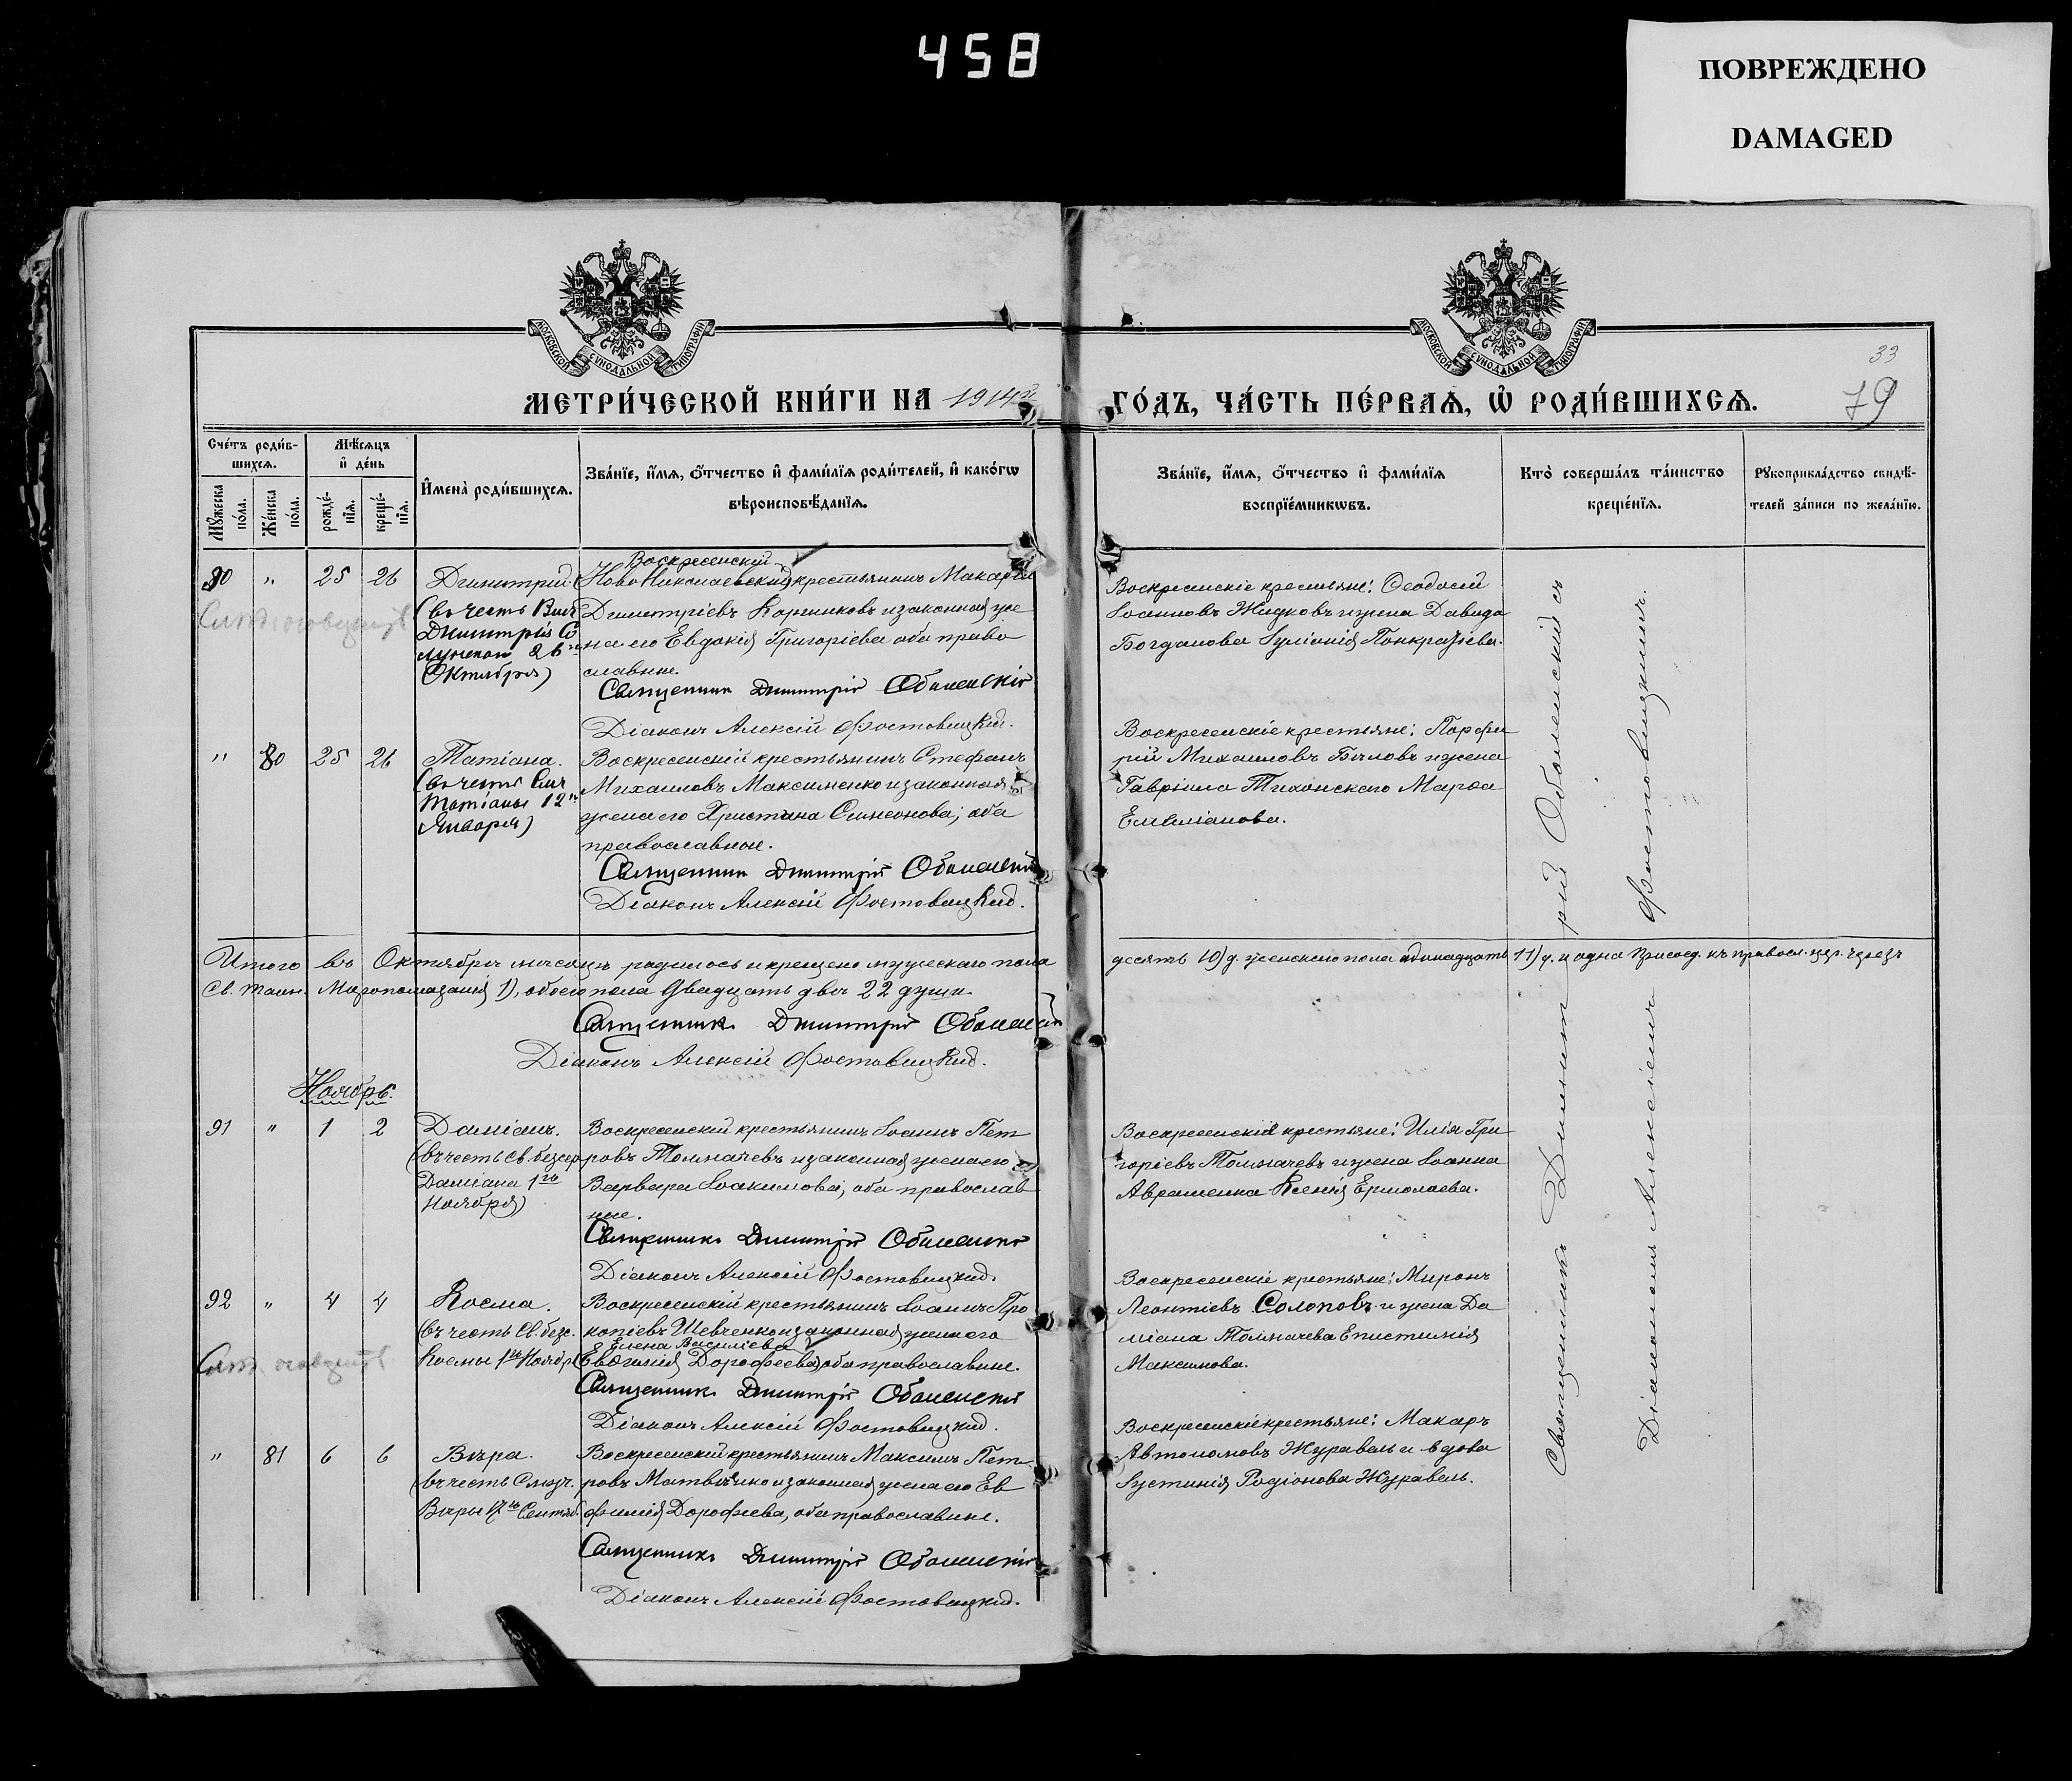 458
ПОВРЕЖДЕНО
DAMAGED
МОСКОВСКОЙ СѴНОДАЛЬНОЙ ТИПОГРАФІИ
МОСКОВСКОЙ СѴНОДАЛЬНОЙ ТИПОГРАФІИ
33
79
МЕТРИ́ЧЕСКОЙ КНИ́ГИ НА 1914й
ГО́ДЪ, ЧА́СТЬ ПЕ́РВАѦ, Ѡ҆ РОДИ́ВШИХСѦ.
Сче́тъ роди́в-
шихсѧ.
Мѣ́сѧцъ
и҆ де́нь
Мꙋ́жеска по́ла.
Же́нска по́ла.
рожде́-
нїѧ.
креще́-
нїѧ.
И҆мена̀ роди́вшихсѧ.
Зва́нїе, и҆́мѧ, ѻ҆́тчество и҆ фами́лїѧ роди́телей, и҆ како́гѡ
вѣроисповѣ́данїѧ.
Зва́нїе, и҆́мѧ, ѻ҆́тчество и҆ фами́лїѧ
воспрїе́мникѡвъ.
Кто̀ соверша́лъ та́инство
креще́нїѧ.
Рꙋкоприкла́дство свидѣ́-
телей за́писи по жела́нїю.
90 " 25 26
Димитрій
(въ честь Вмч
Димитрія Со
лунскаго 26го
Октября)
Воскресенскій
(Ново Николаевскій) крестьянинъ Макарій
Димитріевъ Коржиковъ и законная же
на его Евдокія Григоріева оба право
славные.
Священникъ Димитрій Оболенскій
Діаконъ Алексій Фостовицкій.
Воскресенскіе крестьяне: Ѳеодосій
Іоанновъ Жидковъ и жена Давида
Богданова Іуліанія Понкратіева.
" 80 25 26
Татіана.
(въ честь Вмч
Татіаны 12го
Января)
Воскресенскій крестьянинъ Стефанъ
Михаиловъ Максименко и законная
жена его Христина Симеонова; оба
православные.
Священникъ Димитрій Оболенскій
Діаконъ Алексій Фостовицкій.
Воскресенскіе крестьяне: Порфи
рій Михаиловъ Бѣловъ и жена
Гавріила Тихонскаго Марѳа
Емиліанова.
Итого въ Октябрѣ мѣсяцѣ родилось и крещено мужескаго пола
десять 10) д. женскаго пола одинадцать 11) д. и одна присоед. къ правосл. цер. чрезъ
св. таин. Мѵропомазанія 1), обоего пола двадцать двѣ 22 души.
Священникъ Димитрій Оболенскій
Діаконъ Алексій Фостовицкій.
Ноябрь.
91 " 1 2
Даміанъ.
(въ честь св. безср
Даміана 1го
Ноября)
Воскресенскій крестьянинъ Іоаннъ Пет
ровъ Толмачевъ и законная жена его
Варвара Іоакимова; оба православ
ные.
Священникъ Димитрій Оболенскій
Діаконъ Алексій Фостовицкій.
Воскресенскіе крестьяне: Илія Гри
горіевъ Толмачевъ и жена Іоанна
Авраменка Ксенія Ермолаева.
92 " 4 4
Косма.
(въ честь св. безс.
Космы 1го Ноября
Воскресенскій крестьянинъ Іоаннъ Про
копіевъ Шевченко и законная жена его
Елена Василіева
(Евѳимія Дорофеева) оба православные.
Священникъ Димитрій Оболенскій
Діаконъ Алексій Фостовицкій.
Воскресенскіе крестьяне: Миронъ
Леонтіевъ Солоповъ и жена Да
міана Толмачева Епистимія
Максимова.
" 81 6 6
Вѣра.
(въ честь Св. муч.
Вѣры 17го Сентяб.
Воскресенскій крестьянинъ Максимъ Пет
ровъ Матвѣйко и законная жена его Ев
фимія Дорофеева, оба православные.
Священникъ Димитрій Оболенскій
Діаконъ Алексій Фостовицкій.
Воскресенскіе крестьяне: Макаръ
Автономовъ Журавель и вдова
Іустинія Родіонова Журавель.
Священникъ Димитрій Оболенскій съ
Діакономъ Алексіемъ Фостовицкимъ.